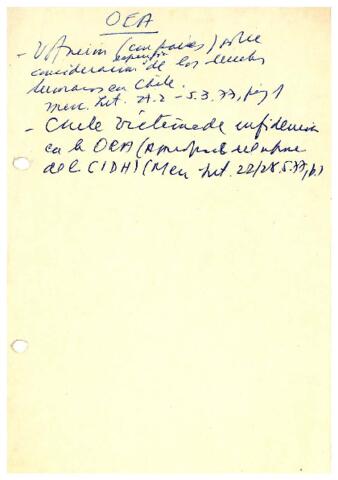 OEA
- Votación (con países) sobre
expresión
consideración de los derechos
humanos en Chile.
Merc. Int. 27.2 - 5.3.77, pág 1
- Chile víctima de infidencia
en la OEA (A propósito del informe
de la CIDH) (Merc. Int. 22/28.5.77, p.)